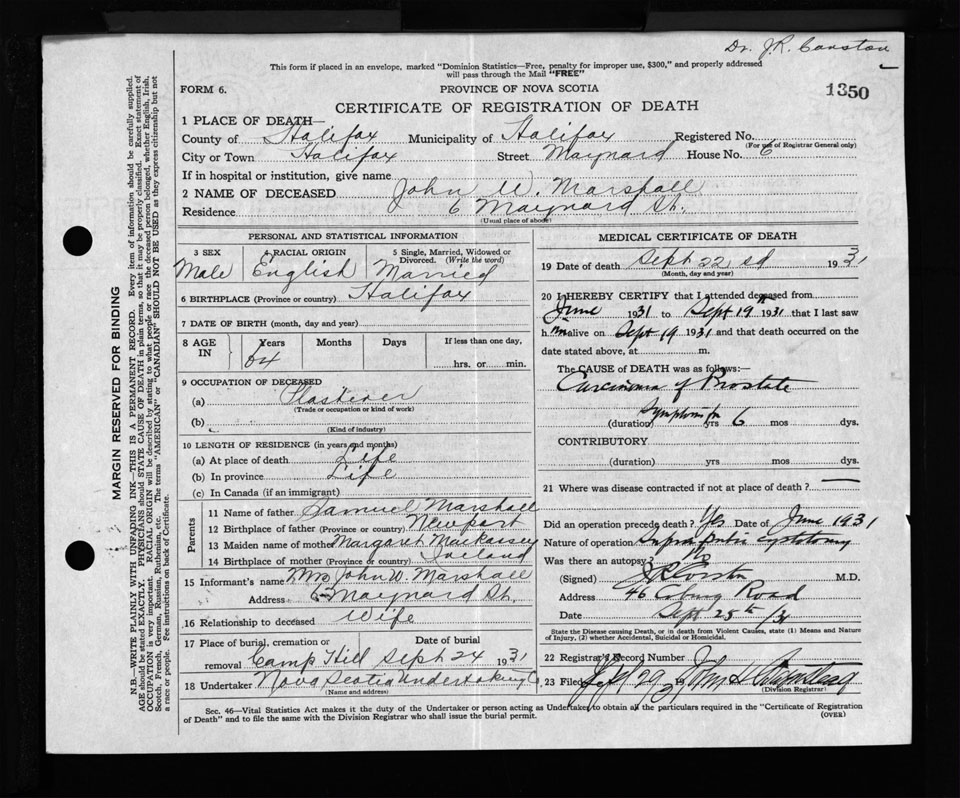 Dr. J.R. Corston
This form if placed in an envelope, marked "Dominion Statistics—Free, penalty for improper use, $300," and properly addressed
will pass through the Mail "FREE"
FORM 6.
PROVINCE OF NOVA SCOTIA
1350
CERTIFICATE OF REGISTRATION OF DEATH
1 PLACE OF DEATH—
County of Halifax Municipality of Halifax Registered No.
(For use of Registrar General only)
City or Town Halifax Street Maynard House No. 6
If in hospital or institution, give name
2 NAME OF DECEASED John W. Marshall
Residence 6 Maynard St.
(Usual place of abode)
PERSONAL AND STATISTICAL INFORMATION
3 SEX 4 RACIAL ORIGIN 5 Single, Married, Widowed or Divorced. (Write the word)
Male English Married
6 BIRTHPLACE (Province or country) Halifax
7 DATE OF BIRTH (month, day and year)
8 AGE IN Years Months Days If less than one day,
64 hrs. or min.
9 OCCUPATION OF DECEASED
(a) Plasterer
(Trade or occupation or kind of work)
(b)
(Kind of industry)
10 LENGTH OF RESIDENCE (in years and months)
(a) At place of death Life
(b) In province Life
(c) In Canada (if an immigrant)
Parents
11 Name of father Samuel Marshall
12 Birthplace of father (Province or country) Newport
13 Maiden name of mother Margaret Mackassey
14 Birthplace of mother (Province or country) Ireland
15 Informant's name Mrs John W. Marshall
Address 63 Maynard St.
16 Relationship to deceased Wife
17 Place of burial, cremation or Date of burial
removal Camp Hill Sept 24 1931
18 Undertaker Nova Scotia Undertaking Co
(Name and address)
MEDICAL CERTIFICATE OF DEATH
19 Date of death Sept 22nd 1931
(Month, day and year)
20 I HEREBY CERTIFY that I attended deceased from
June 1931 to Sept 19th 1931 that I last saw
him alive on Sept 19 1931 and that death occurred on the
date stated above, at m.
The CAUSE of DEATH was as follows:—
Carcinoma of Prostate
Symptoms for
(duration) yrs 6 mos dys.
CONTRIBUTORY
(duration) yrs mos dys.
21 Where was disease contracted if not at place of death?
Did an operation precede death? Yes Date of June 1931
Nature of operation Supra Pubic Cystotomy
Was there an autopsy? No
(Signed) J R Corston M.D.
Address 46 Coburg Road
Date Sept 25th /31
State the Disease causing Death, or in death from Violent Causes, state (1) Means and Nature
of Injury, (2) whether Accidental, Suicidal or Homicidal.
22 Registrar's Record Number
23 Filed Sept 29 1931 John H
(Division Registrar)
Sec. 46—Vital Statistics Act makes it the duty of the Undertaker or person acting as Undertaker to obtain all the particulars required in the "Certificate of Registration
of Death" and to file the same with the Division Registrar who shall issue the burial permit.
(OVER)
MARGIN RESERVED FOR BINDING
N.B.—WRITE PLAINLY WITH UNFADING INK—THIS IS A PERMANENT RECORD. Every item of information should be carefully supplied.
AGE should be stated EXACTLY. PHYSICIANS should STATE CAUSE OF DEATH in plain terms, so that it may be properly classified. Exact statement of
OCCUPATION is very important. RACIAL ORIGIN will be described by stating to what people or race the deceased person belonged, whether English, Irish,
Scotch, French, German, Russian, Ruthenian, etc. The terms "AMERICAN" or "CANADIAN" SHOULD NOT BE USED as they express citizenship but not
a race or people. See instructions on back of Certificate.